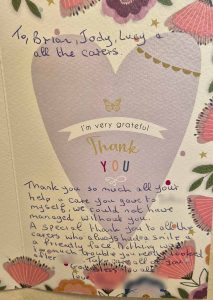 To, Brian, Jody, Lucy &
all the carers.
I'm very grateful
Thank
YOU
Thank you so much all your
help & care you gave to
myself, we could not have
managed without you.
A special thank you to all the
carers who always had a smile &
a friendly face. Nothing was
too much trouble you really looked
after
all of you